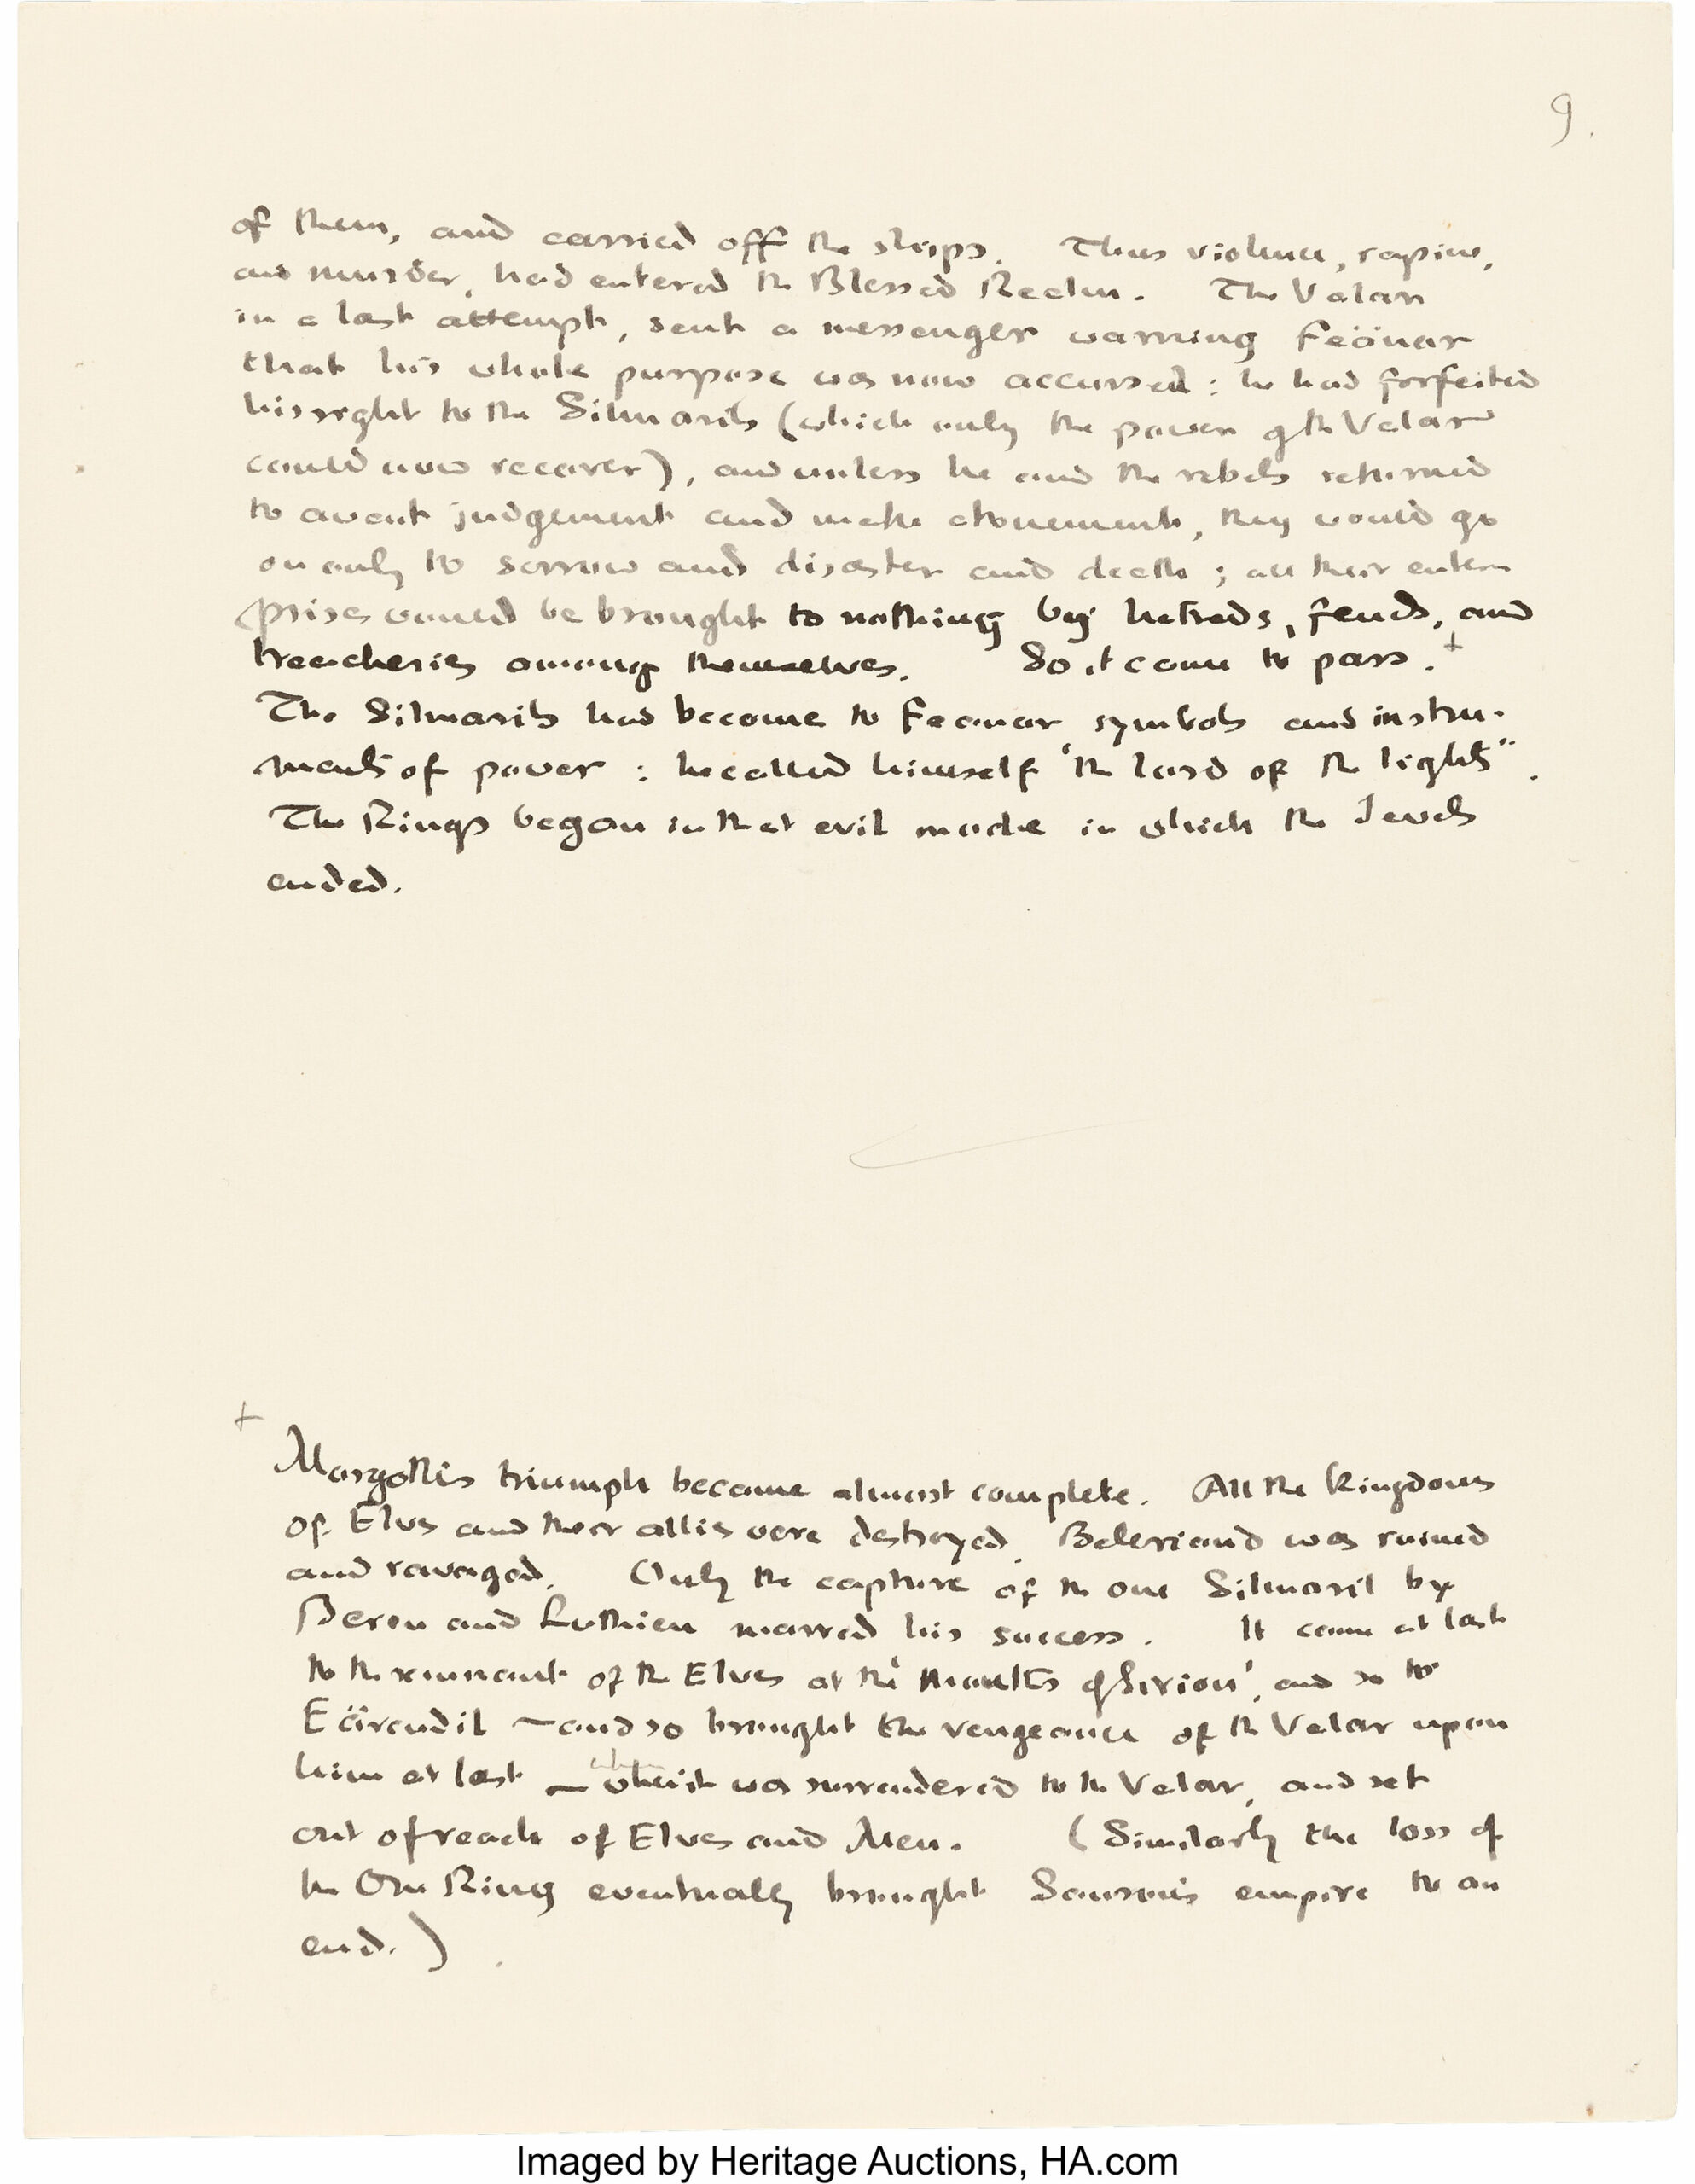 9.
of them, and carried off the ships. Thus violence, rapine,
and murder, had entered the Blessed Realm. The Valar
in a last attempt, sent a messenger warning Fëanar
that his whole purpose was now accursed : he had forfeited
his right to the Silmarils (which only the power of the Valar
could now recover), and unless he and the rebels returned
to await judgement and make atonement, they would go
on only to sorrow and disaster and death ; all their enter-
prises would be brought to nothing by hatreds, feuds, and
treacheries among themselves. So it came to pass. +
The Silmarils had become to Feanar symbols and instru-
ments of power : he called himself 'the lord of the lights".
The Rings began in that evil mode in which the Jewels
ended.
+
Morgoth's triumph became almost complete. All the Kingdoms
of Elves and their allies were destroyed. Beleriand was ruined
and ravaged. Only the capture of the one Silmaril by
Beren and Luthien marred his success. It came at last
to the remnant of the Elves at the 'mouths of Sirion', and so to
Eärendil – and so brought the vengeance of the Valar upon
him at last – when it was surrendered to the Valar, and set
out of reach of Elves and Men. (Similarly the loss of
the One Ring eventually brought Sauron's empire to an
end.)
Imaged by Heritage Auctions, HA.com